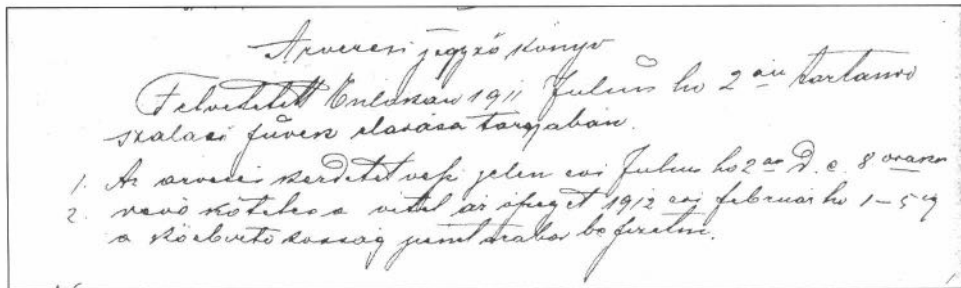 Arveresi jegyző könyv
Felvétetett Enlakán 1911 Julius ho 2 án tartando
szalasi füvek eladása targyaban.
1. Az arveres kezdetét vesz jelen evi Julius ho 2 án D. e. 8 orakor
2. vevő köteles a vétel ár öszeget 1912 evi februar ho 1-5 ig
a közbirtokosság pénztárába befizetni.